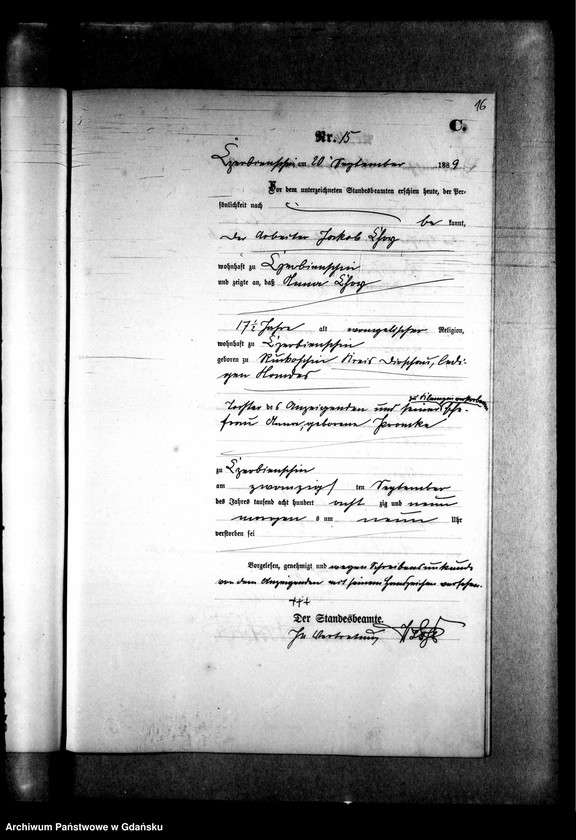 16
C.
Nr. 15
Czerbienschin am 20 September 1889
Vor dem unterzeichneten Standesbeamten erschien heute, der Per-
sönlichkeit nach
be kannt,
der Arbeiter Jakob
wohnhaft zu Czerbienschin
und zeigte an, daß Anna
17½ Jahre alt evangelischer Religion,
wohnhaft zu Czerbienschin
geboren zu Rukoschin Kreis Dirschau, ledi-
gen Standes
zu verstorbenen
Tochter des Anzeigenden und seiner Ehe-
frau Anna, geborene
zu Czerbienschin
am zwanzigsten September
des Jahres tausend acht hundert acht zig und neun
morgens um neun Uhr
verstorben sei
Vorgelesen, genehmigt und wegen Schreibensunkunde
von dem Anzeigenden mit seinem Handzeichen versehen.
+++
Der Standesbeamte.
In Vertretung
Archiwum Państwowe w Gdańsku